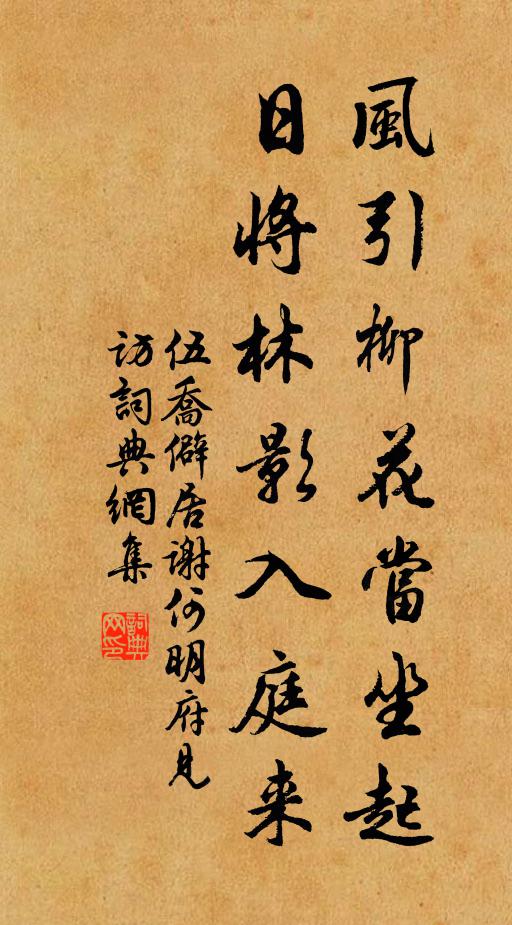 風引柳花當坐起
日將林影入庭来
伍喬僻居謝何明府見
訪詞典網集
詞典
网印